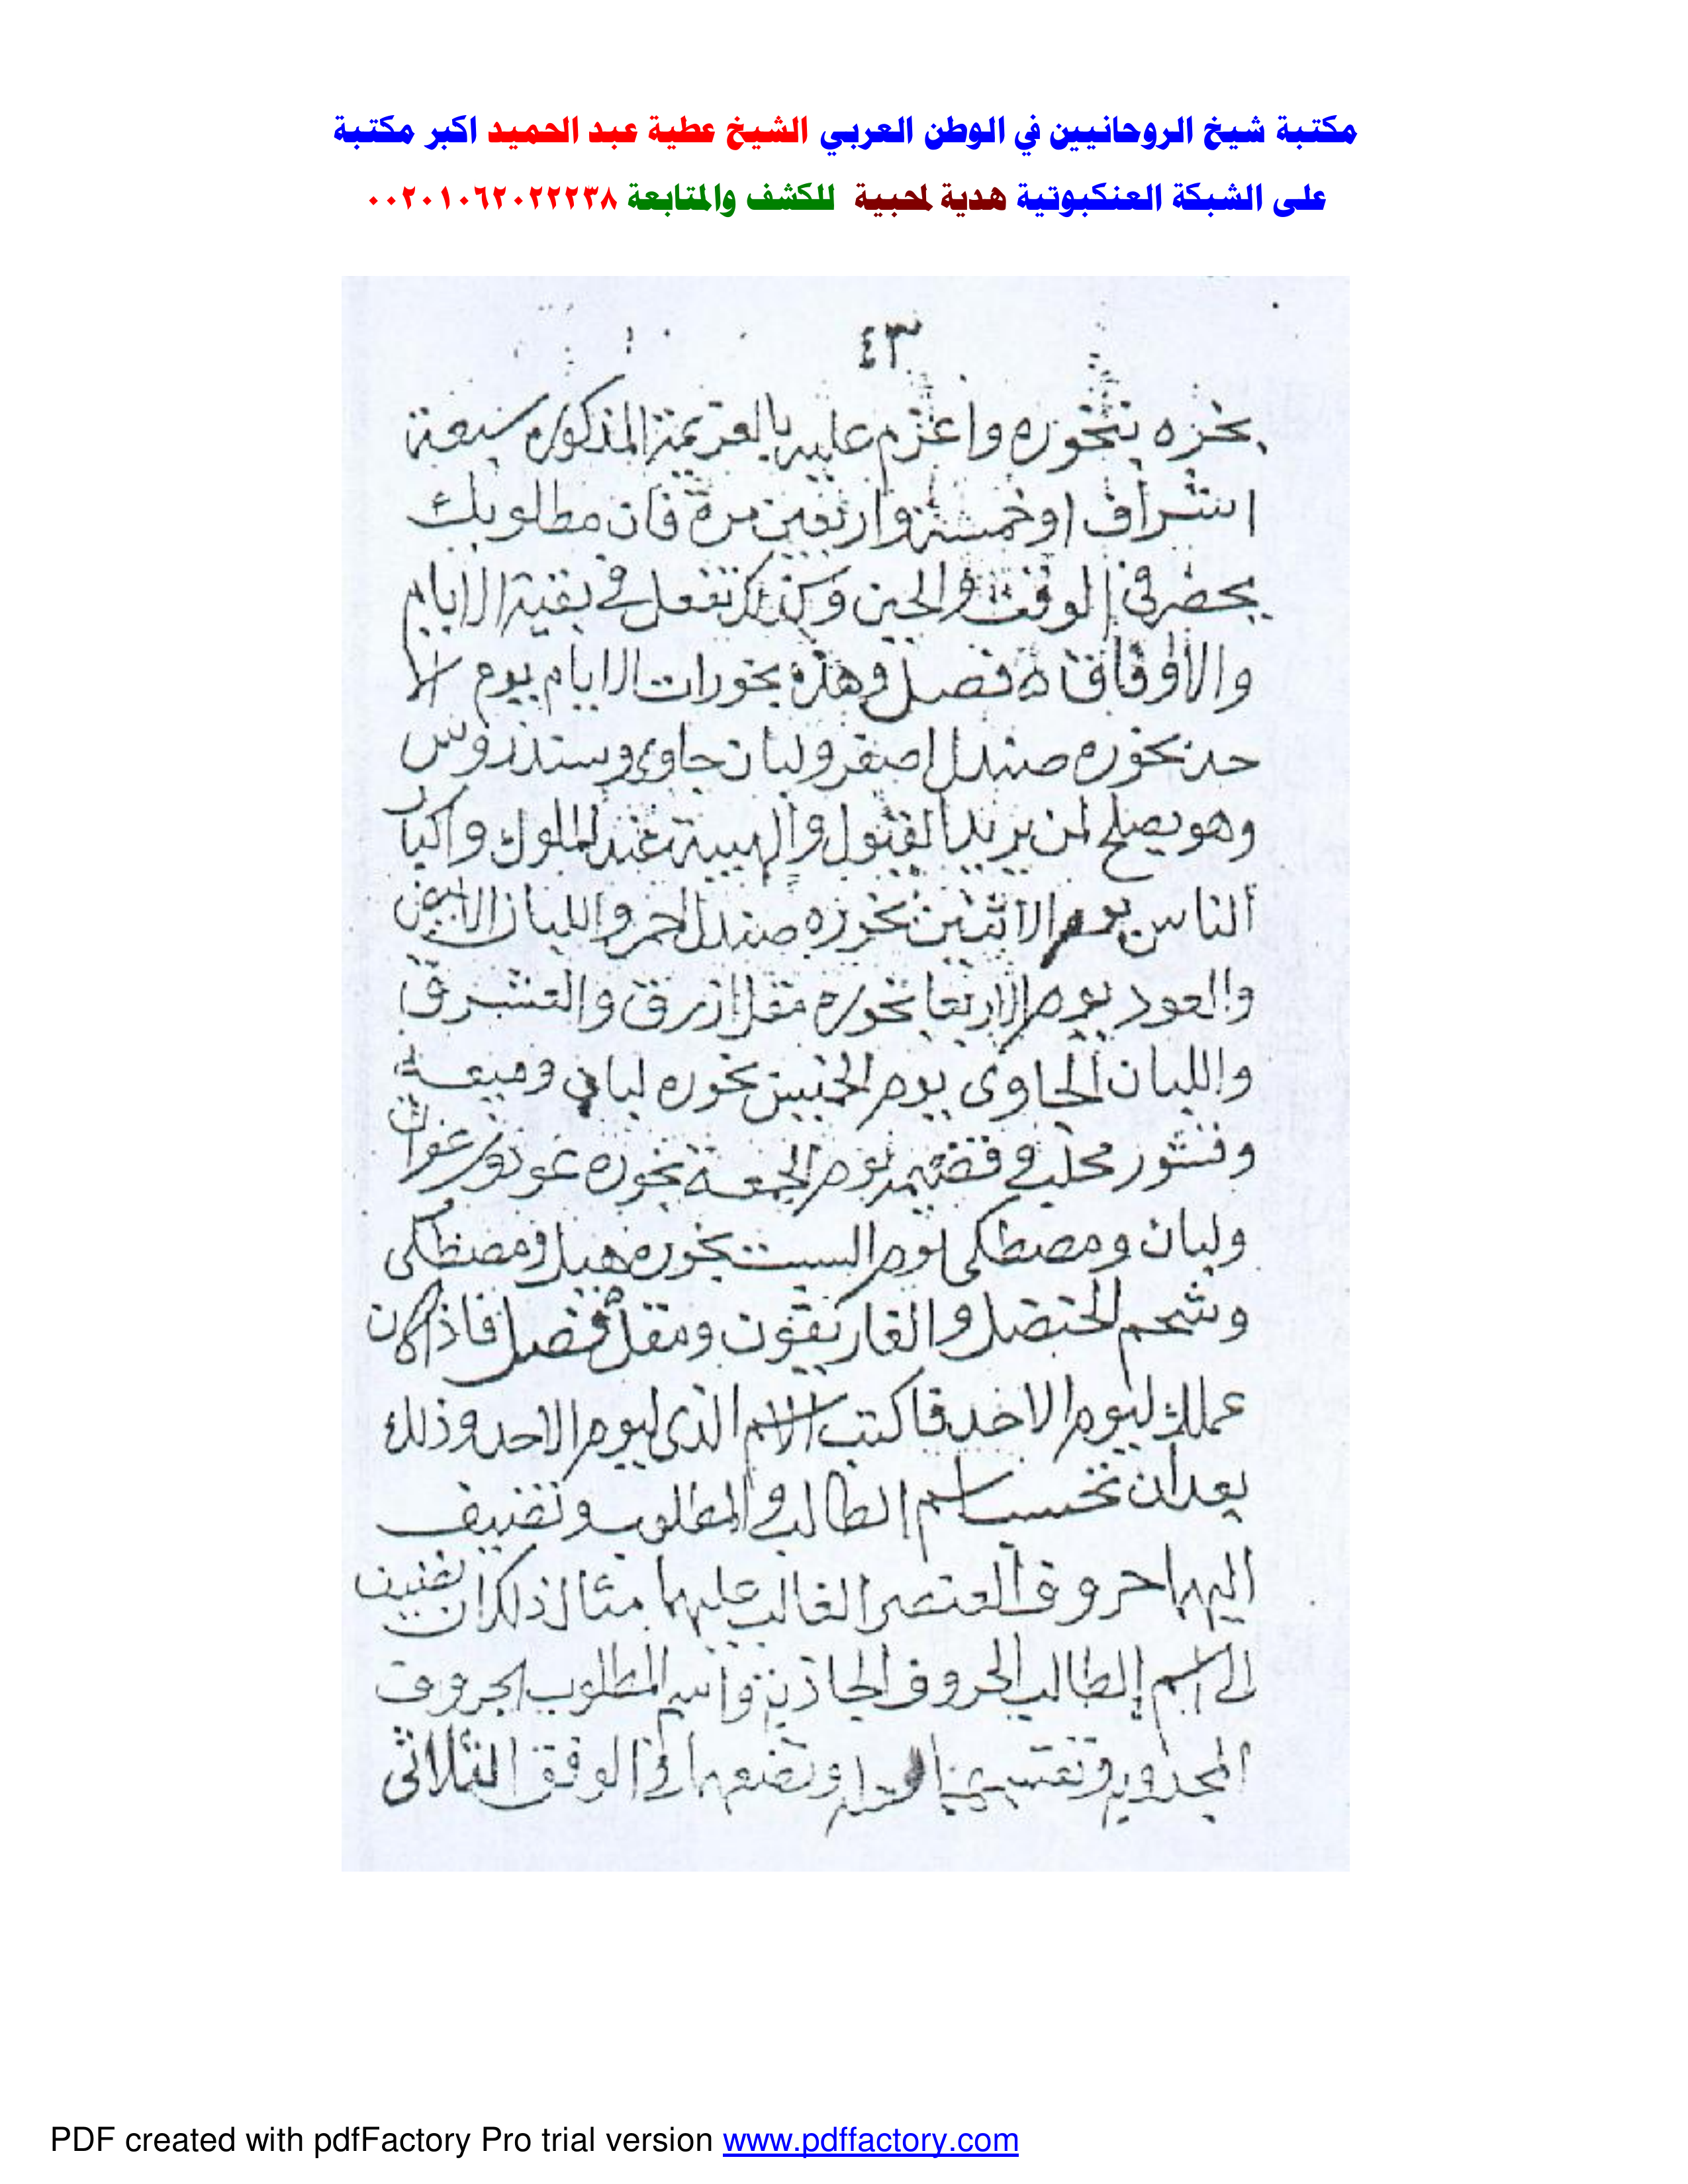 مكتبة شيخ الروحانيين في الوطن العربي الشيخ عطية عبد الحميد اكبر مكتبة
على الشبكة العنكبوتية هدية لمحبية للكشف والمتابعة ٠٠٢٠١٠٦٢٠٢٢٢٣٨
٤٣
بخره بتخوره واعزم عليه بالعزيمة المذكوره سبعة
اشراف اوخمسة واربعين مرة فان مطلوبك
يحضر في الوقت والحين وكذلك تفعل في بقية الايام
والاوفاق فصل وهذه بخورات الايام يوم الا
حد بخوره صندل اصفر ولبان جاوى وسندروس
وهو يصلح لمن يريد القبول والهيبة عند الملوك واكبار
الناس يوم الاثنين بخوره صندل احمر واللبان الابيض
والعود يوم الاربعا بخوره مقل ازرق والعشرق
واللبان الجاوى يوم الخميس بخوره لبان وميعة
وقشور محلب يوم الجمعة بخوره عود وزعفران
ولبان ومصطكى يوم السبت بخوره هيل ومصطكى
وشحم الحنضل والغاريقون ومقل فصل فاذا كان
عملك ليوم الاحد فاكتب الاسم الذى ليوم الاحد وذلك
بعد ان تحسب اسم الطالب والمطلوب وتضيف
اليهما حروف العنصر الغالب عليهما مثال ذلك ان تضيف
الى اسم الطالب الحروف الجاذبة واسم المطلوب الحروف
المجذوبه وتضعهما في الوفق الثلاثى
PDF created with pdfFactory Pro trial version www.pdffactory.com